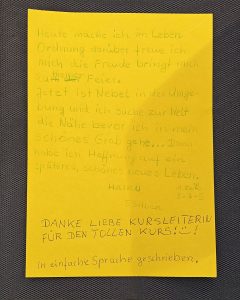 Heute mache ich im Leben
Ordnung darüber freue ich
mich die Freude bringt mich
zur Feier.
Jetzt ist Nebel in der Umge-
bung und ich suche zur Zeit
die Nähe bevor ich in mein
schönes Grab gehe... Dann
habe ich Hoffnung auf ein
späteres, schönes neues Leben.
DANKE LIEBE KURSLEITERIN
FÜR DEN TOLLEN KURS!!
In einfache Sprache geschrieben.